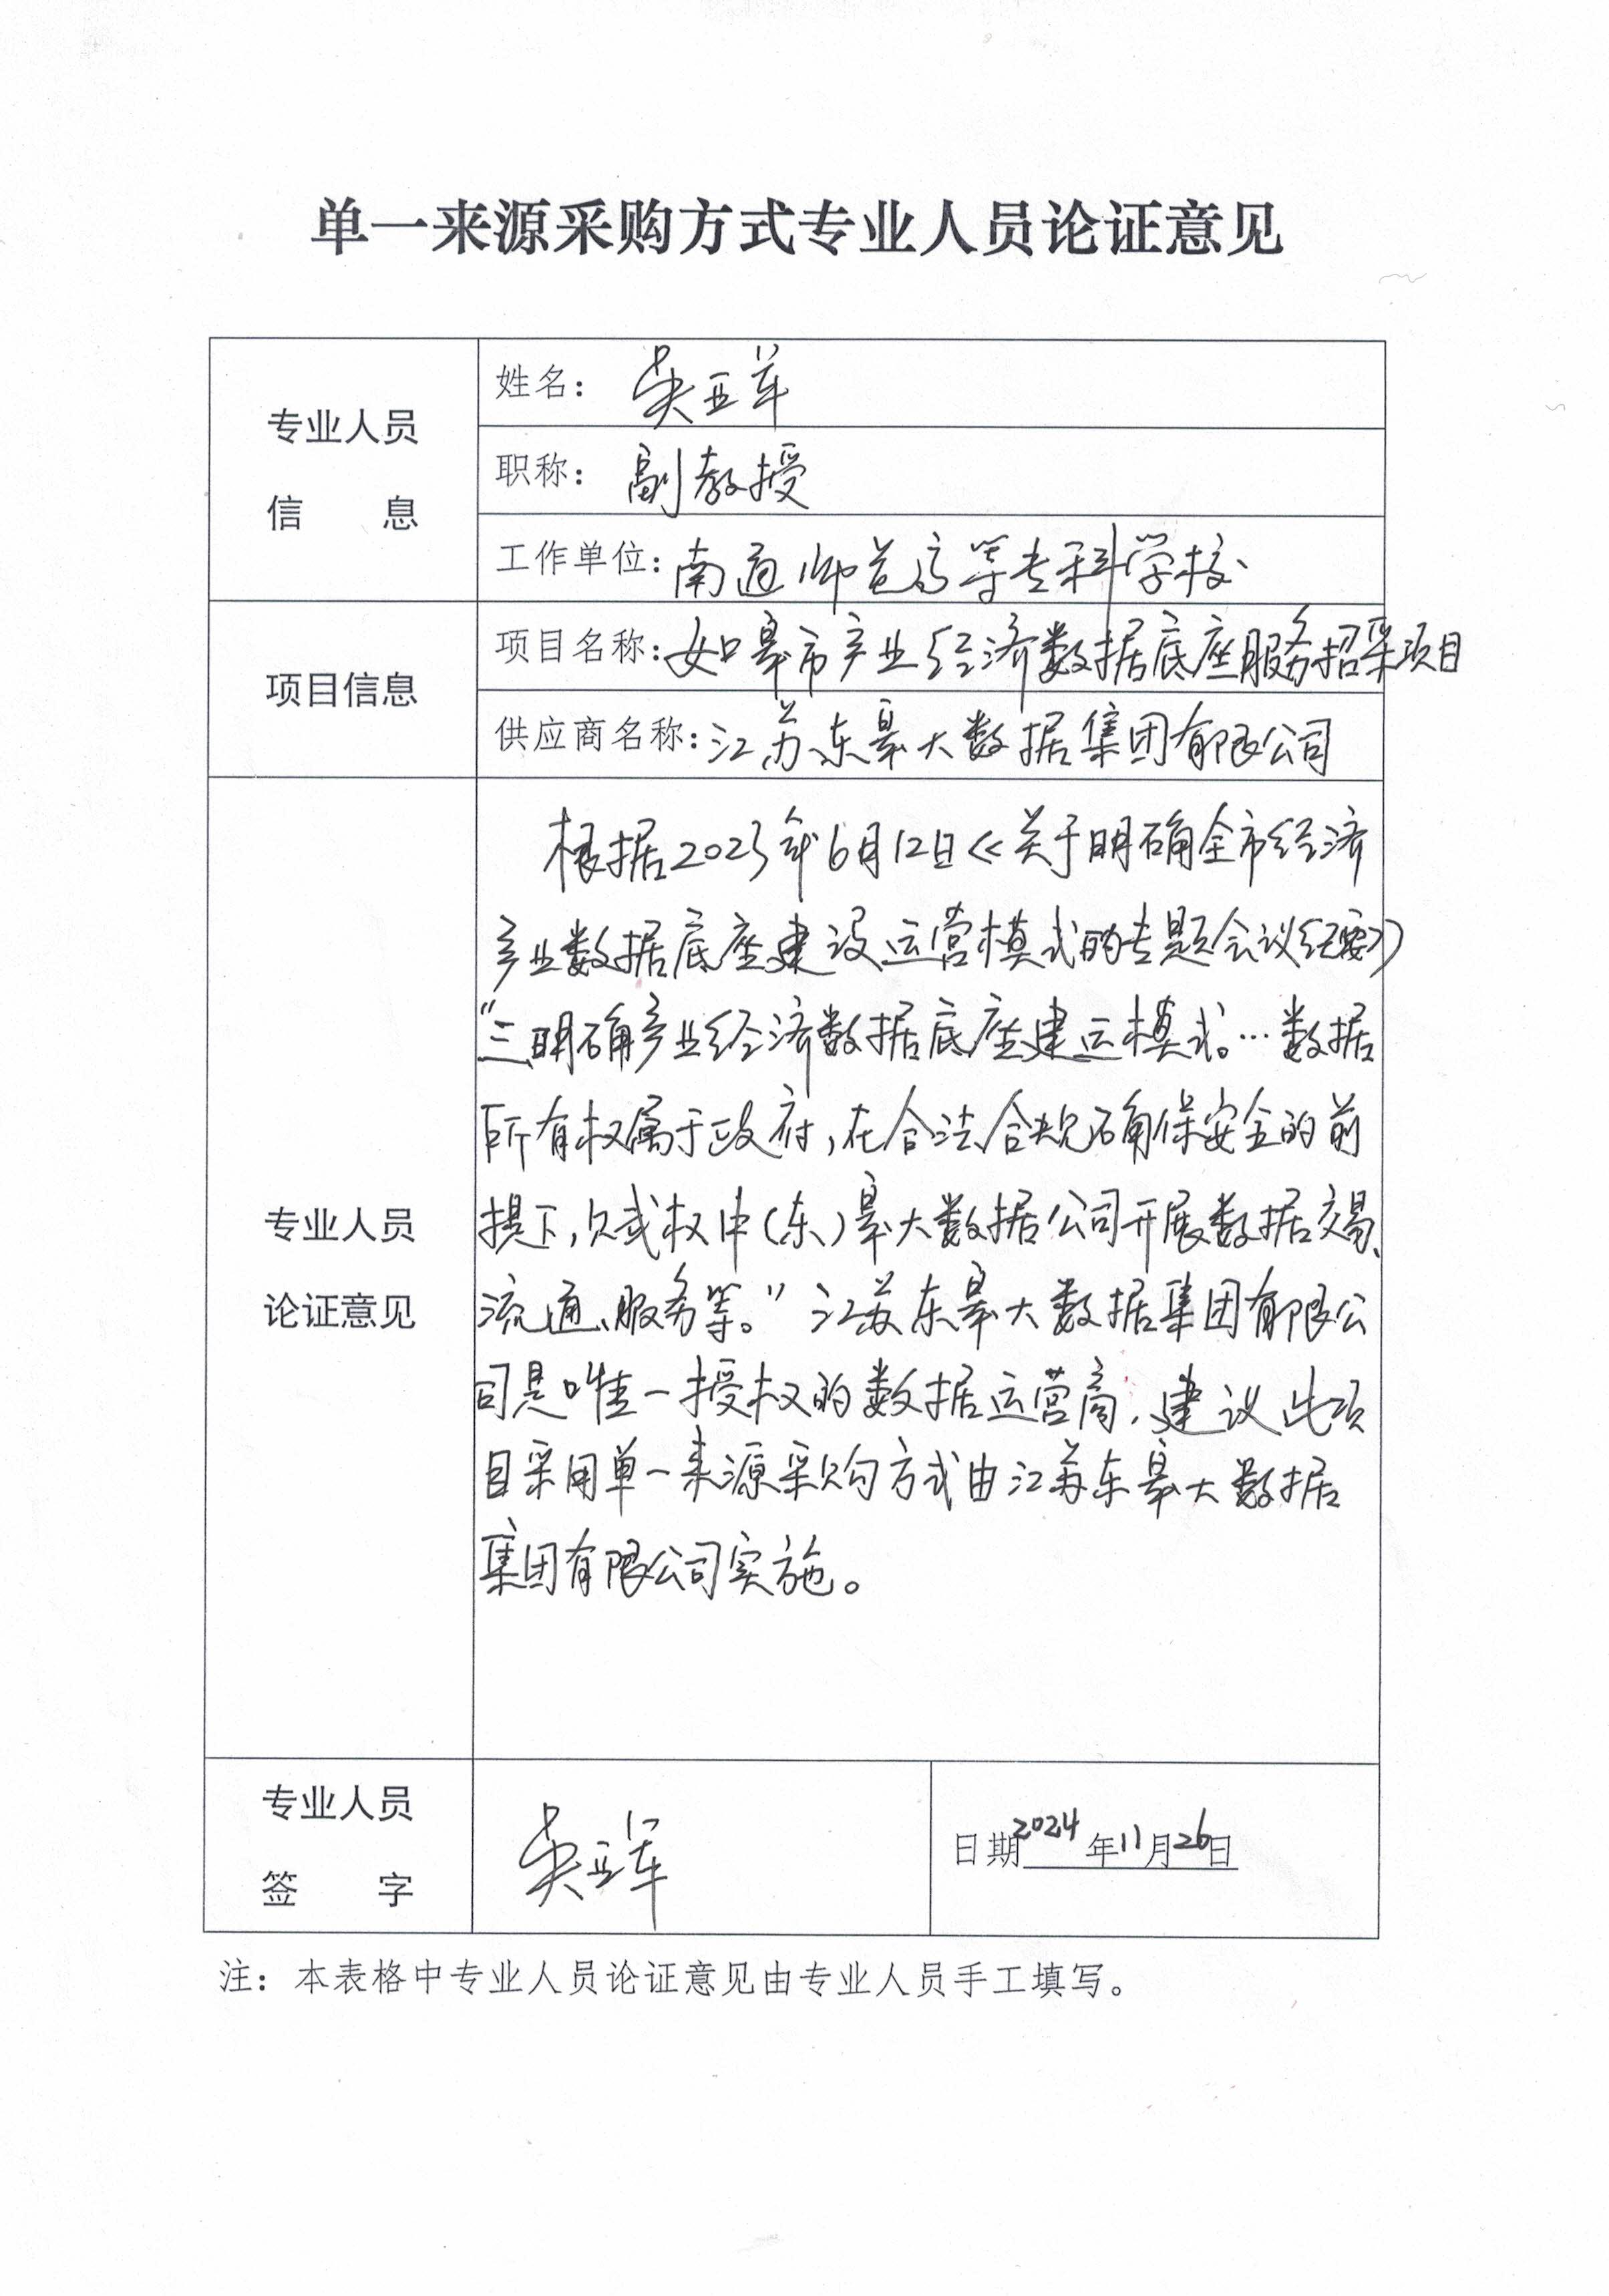 单一来源采购方式专业人员论证意见
专业人员
信 息
姓名：吴亚军
职称：副教授
工作单位：南通师范高等专科学校
项目信息
项目名称：如皋市产业经济数据底座服务招采项目
供应商名称：江苏东皋大数据集团有限公司
专业人员
论证意见
根据2023年6月12日《关于明确全市经济
产业数据底座建设运营模式的专题会议纪要》
“三、明确产业经济数据底座建运模式。…数据
所有权属于政府，在合法合规确保安全的前
提下，权中（东）皋大数据公司开展数据交易、
流通、服务等。”江苏东皋大数据集团有限公
司是唯一授权的数据运营商，建议此项
目采用单一来源采购方式由江苏东皋大数据
集团有限公司实施。
专业人员
签 字
吴亚军
日期2024年11月26日
注：本表格中专业人员论证意见由专业人员手工填写。